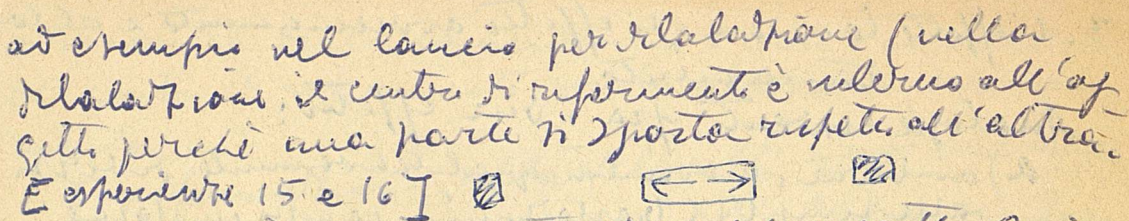 ad esempio nel lancio per dilatazione (nella
dilatazione il centro di riferimento è interno all'og
getto perché una parte si sposta rispetto all'altra.
[esperienze 15 e 16]